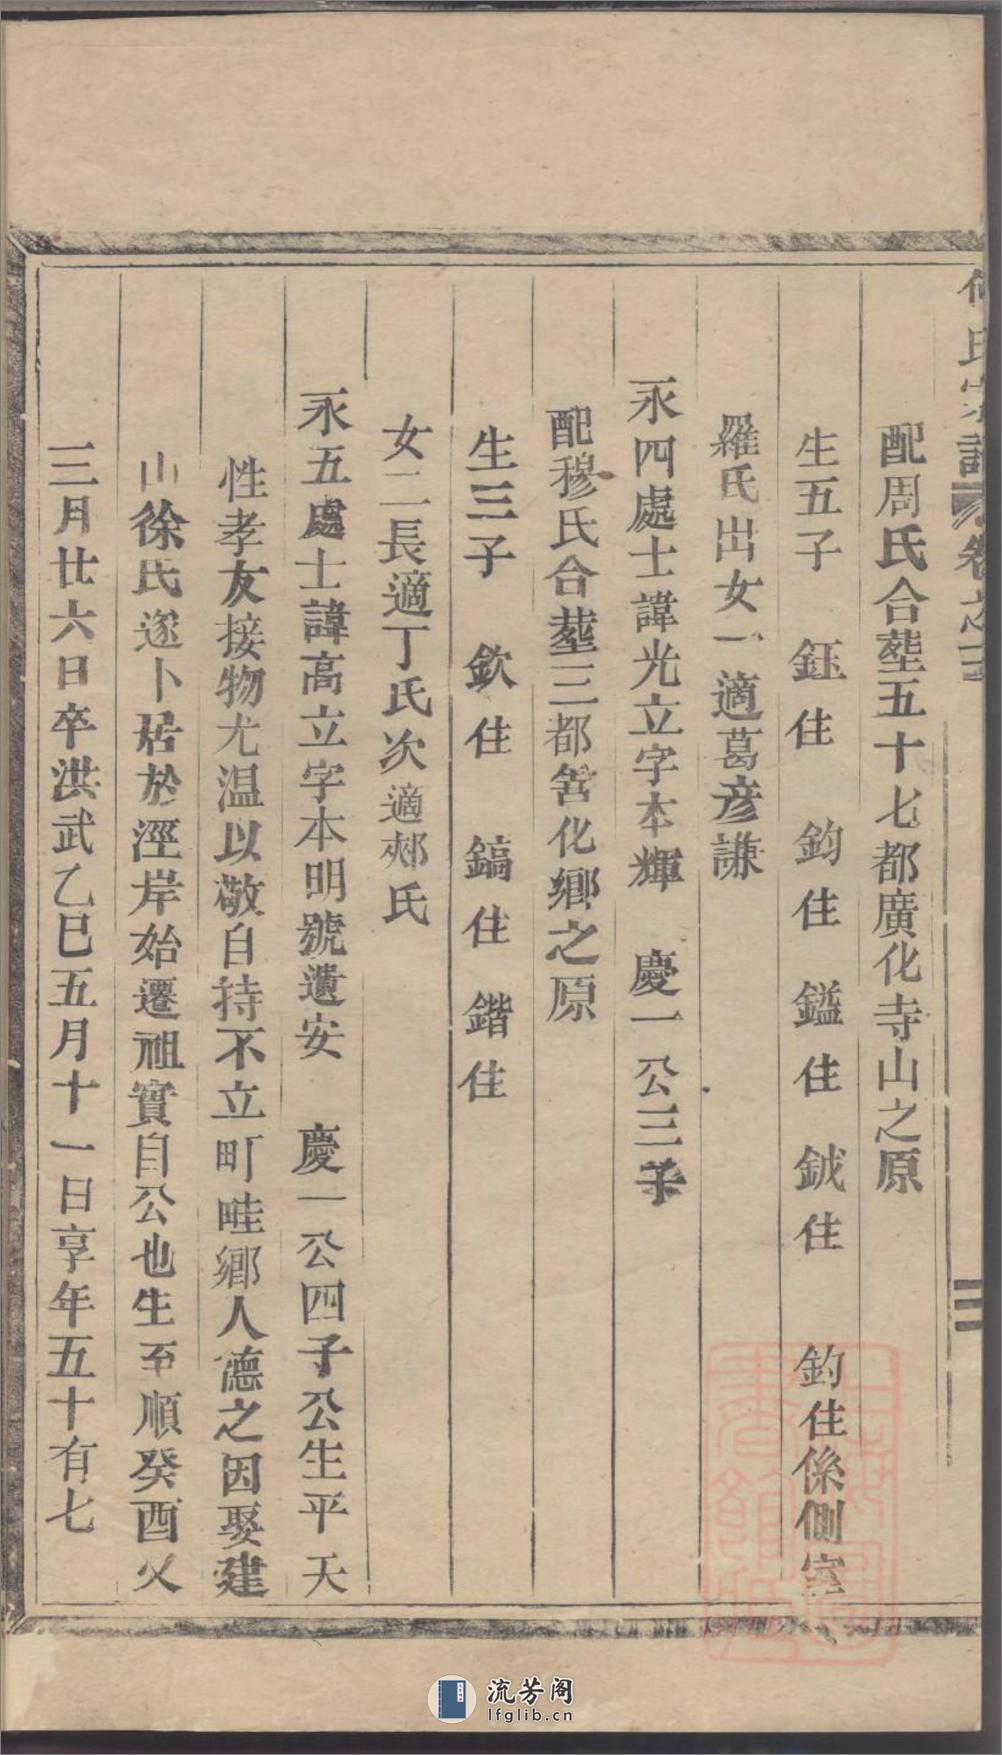 何氏宗譜 卷之一 三
配周氏合塟五十七都廣化寺山之原
生五子 鈺住 鈞住 鎰住 鉞住 鈞住係側室
羅氏出女一適葛彥謙
永四處士諱光立字本輝 慶一公三子
配穆氏合塟三都砦化鄉之原
生三子 欽住 鎬住 鍇住
女二長適丁氏次適郟氏
永五處士諱高立字本明號遺安 慶一公四子公生平天
性孝友接物尤温以敬自持不立町畦鄉人德之因娶建
山徐氏遂卜居於溼岸始遷祖實自公也生至順癸酉父
三月廿六日卒洪武乙巳五月十一日享年五十有七
流芳阁
lfglib.cn